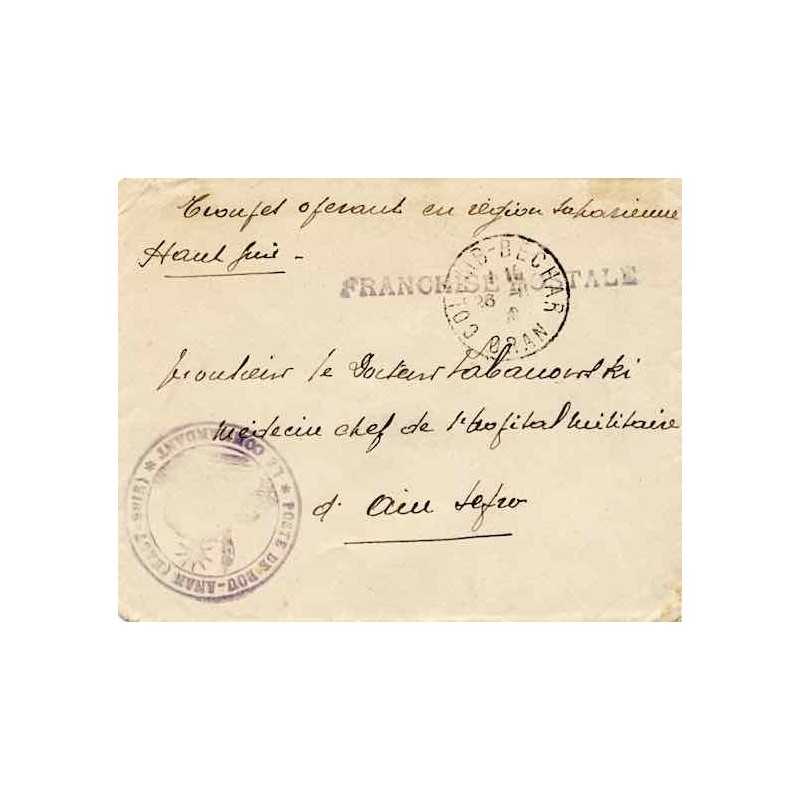 Troupes opérant en région saharienne
Haut Guir -
FRANCHISE POSTALE
COLOMB-BECHAR
26
ORAN
Monsieur le Docteur Labanowski
Médecin chef de l'hopital militaire
d' Ain Sefra
* POSTE DE BOU-ANAN (HAUT-GUIR) *
LE COMMANDANT